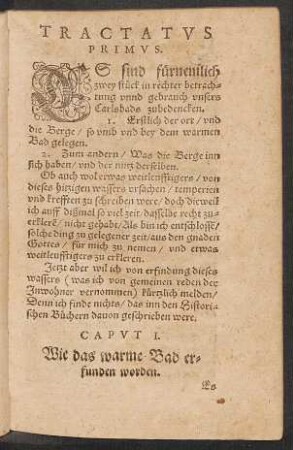 TRACTATVS
PRIMVS.
ES sind fürnemlich
zwey stück in rechter betrach-
tung vnnd gebrauch vnsers
Carlsbads zubedencken.
1. Erstlich der ort / vnd
die Berge / so vmb vnd bey dem warmen
Bad gelegen.
2. Zum andern / Was die Berge inn
sich haben / vnd der nutz derselben.
Ob auch wol etwas weitleufftigers / von
dieses hitzigen wassers vrsachen / temperien
vnd krefften zu schreiben were / doch dieweil
ich auff dißmal so viel zeit / dasselbe recht zu-
erklerē / nicht gehabt / Als bin ich entschlossē /
solche ding zu gelegener zeit / aus den gnaden
Gottes / für mich zu nemen / vnd etwas
weitleufftigers zu erkleren.
Jetzt aber wil ich von erfindung dieses
wassers (was ich von gemeinen reden der
Inwohner vernommen) kürtzlich melden /
Denn ich finde nichts / das inn den Histori-
schen Büchern dauon geschrieben were.
CAPVT I.
Wie das warme Bad er-
funden worden.
Es